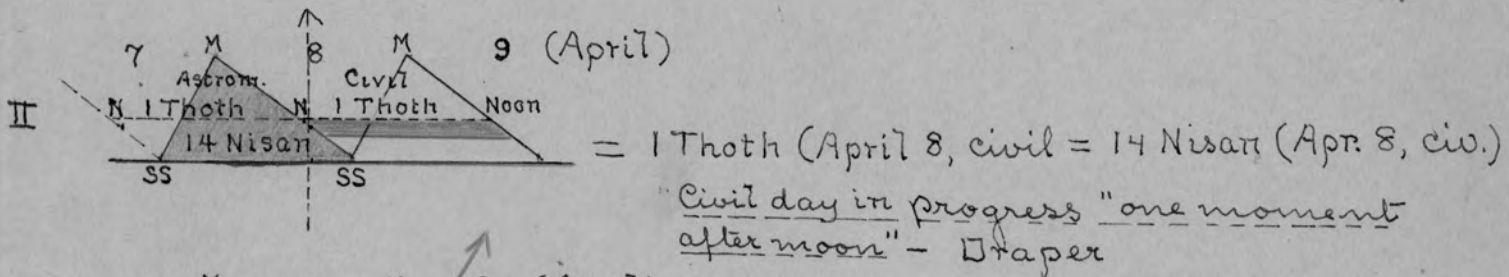 7 M 8 M 9 (April)
Astrom. Civil
II N 1 Thoth N 1 Thoth Noon
14 Nisan = 1 Thoth (April 8, civil = 14 Nisan (Apr. 8, civ.)
SS SS
Civil day in progress "one moment
after moon" - Draper